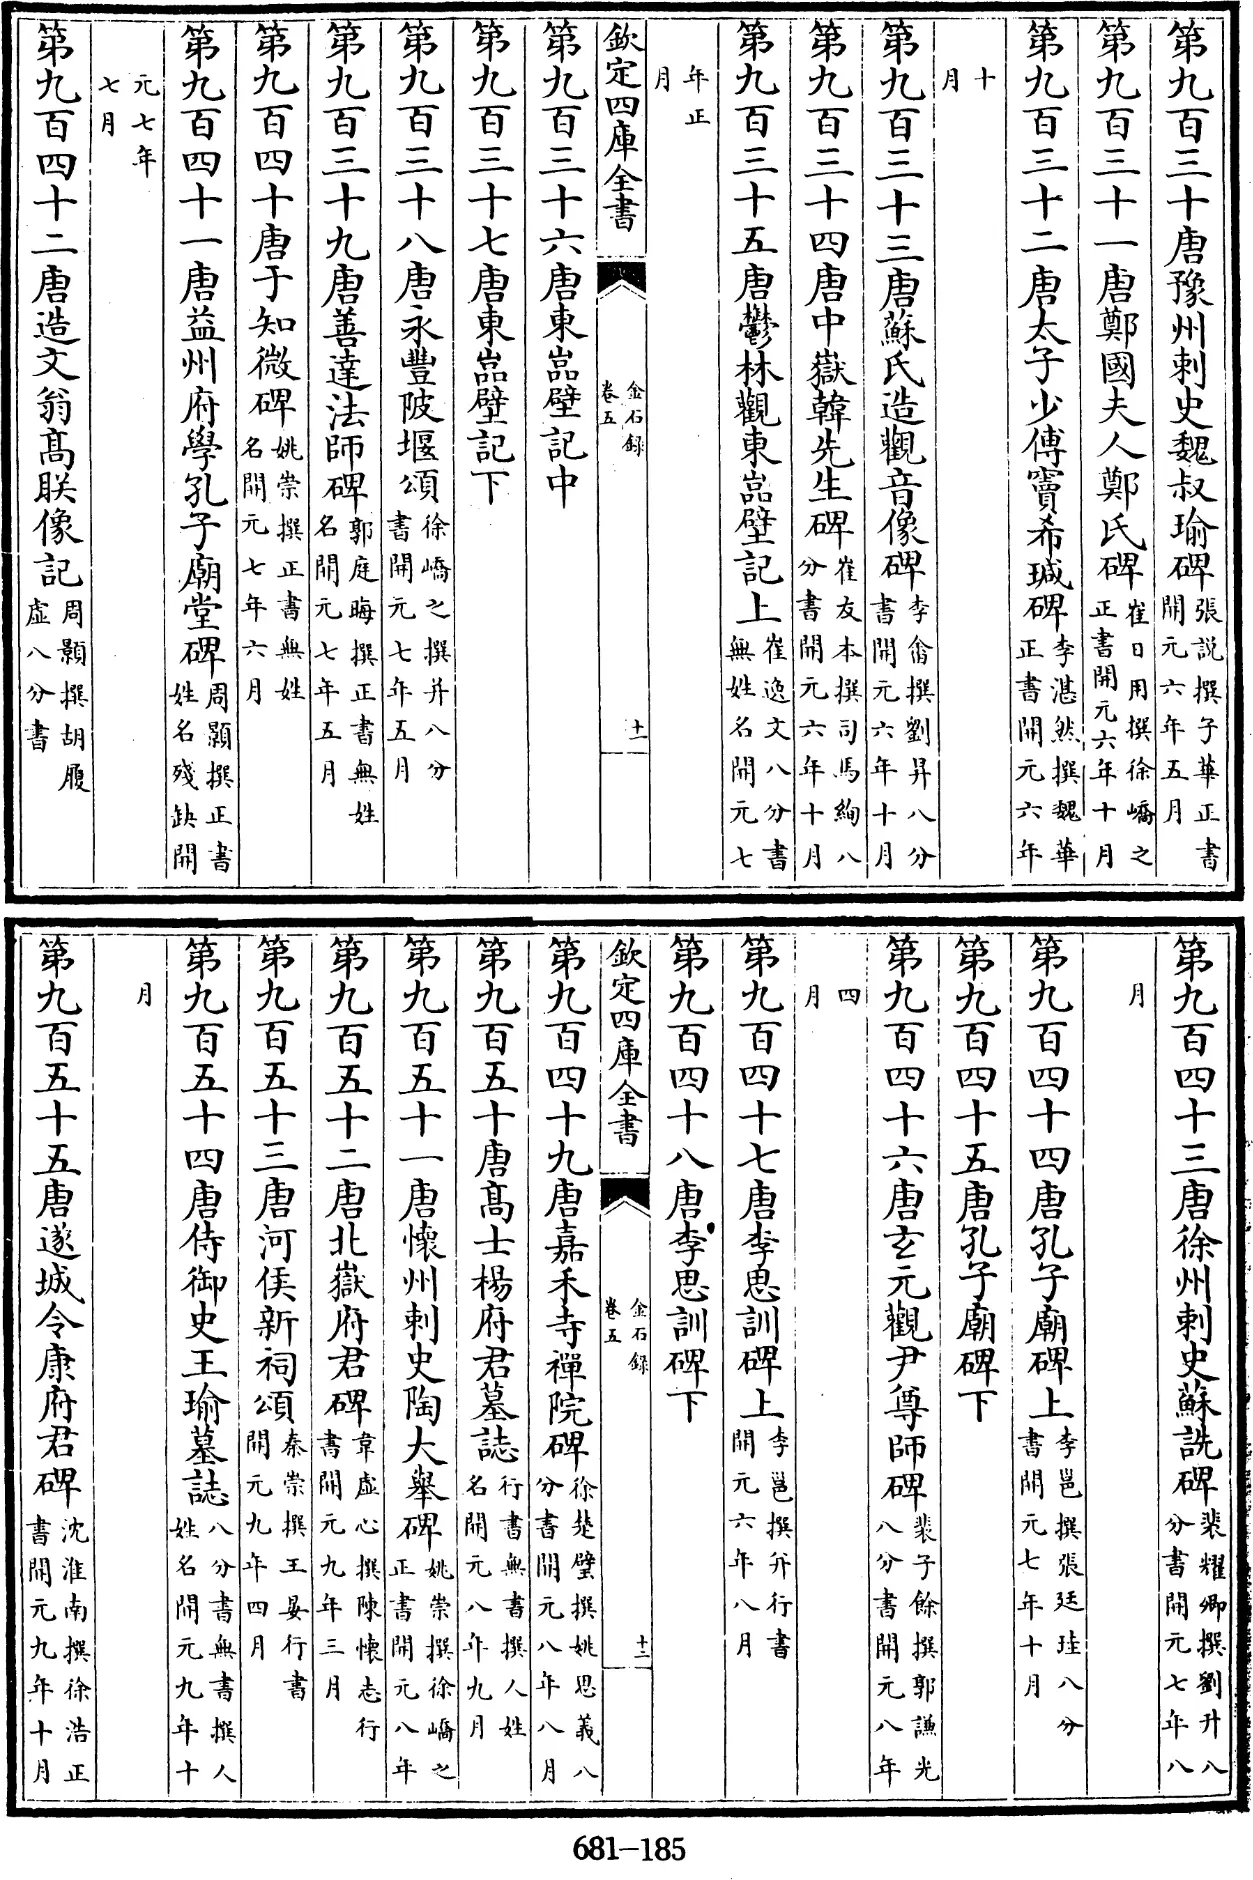 第九百三十唐豫州刺史魏叔瑜碑張説撰子華正書開元六年五月
第九百三十一唐鄭國夫人鄭氏碑崔日用撰徐嶠之正書開元六年十月
第九百三十二唐太子少傅竇希瑊碑李湛然撰魏華正書開元六年
十月
第九百三十三唐蘇氏造觀音像碑李畬撰劉昇八分書開元六年十月
第九百三十四唐中嶽韓先生碑崔友本撰司馬絢八分書開元六年十月
第九百三十五唐鬱林觀東嵓壁記上崔逸文八分書無姓名開元七
年正月
欽定四庫全書 金石録卷五 十一
第九百三十六唐東嵓壁記中
第九百三十七唐東嵓壁記下
第九百三十八唐永豐陂堰頌徐嶠之撰并八分書開元七年五月
第九百三十九唐善達法師碑郭庭晦撰正書無姓名開元七年五月
第九百四十唐于知微碑姚崇撰正書無姓名開元七年六月
第九百四十一唐益州府學孔子廟堂碑周顥撰正書姓名殘缺開
元七年七月
第九百四十二唐造文翁髙朕像記周顥撰胡履虛八分書
第九百四十三唐徐州刺史蘇詵碑裴耀卿撰劉升八分書開元七年八
月
第九百四十四唐孔子廟碑上李邕撰張廷珪八分書開元七年十月
第九百四十五唐孔子廟碑下
第九百四十六唐玄元觀尹尊師碑裴子餘撰郭謙光八分書開元八年
四月
第九百四十七唐李思訓碑上李邕撰并行書開元六年八月
第九百四十八唐李思訓碑下
欽定四庫全書 金石録卷五 十二
第九百四十九唐嘉禾寺禪院碑徐楚璧撰姚思義八分書開元八年八月
第九百五十唐髙士楊府君墓誌行書無書撰人姓名開元八年九月
第九百五十一唐懷州刺史陶大舉碑姚崇撰徐嶠之正書開元八年
第九百五十二唐北嶽府君碑韋虛心撰陳懷志行書開元九年三月
第九百五十三唐河侯新祠頌秦崇撰王晏行書開元九年四月
第九百五十四唐侍御史王瑜墓誌八分書無書撰人姓名開元九年十
月
第九百五十五唐遂城令康府君碑沈淮南撰徐浩正書開元九年十月
681-185